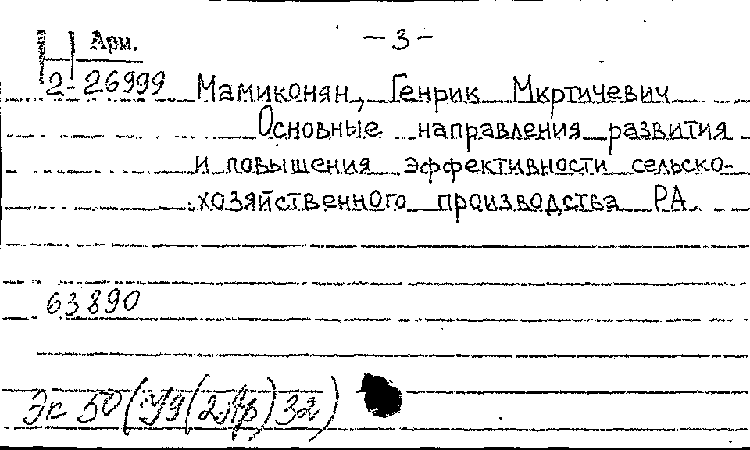 Арм.
— 3 —
2-26999
Мамиконян, Генрик Мкртичевич
Основные направления развития
и повышения эффективности сельско-
хозяйственного производства РА
63890
Эк 50(У9(2Ар)32)